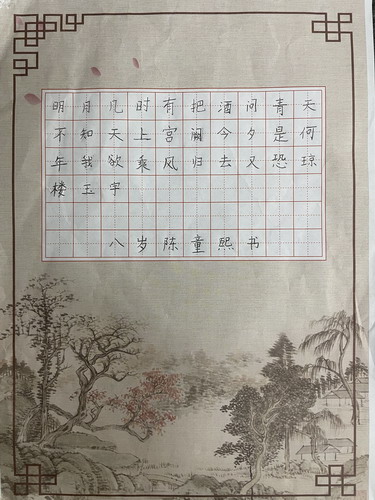 明月几时有把酒问青天
不知天上宫阙今夕是何
年我欲乘风归去又恐琼
楼玉宇
八岁陈童熙书